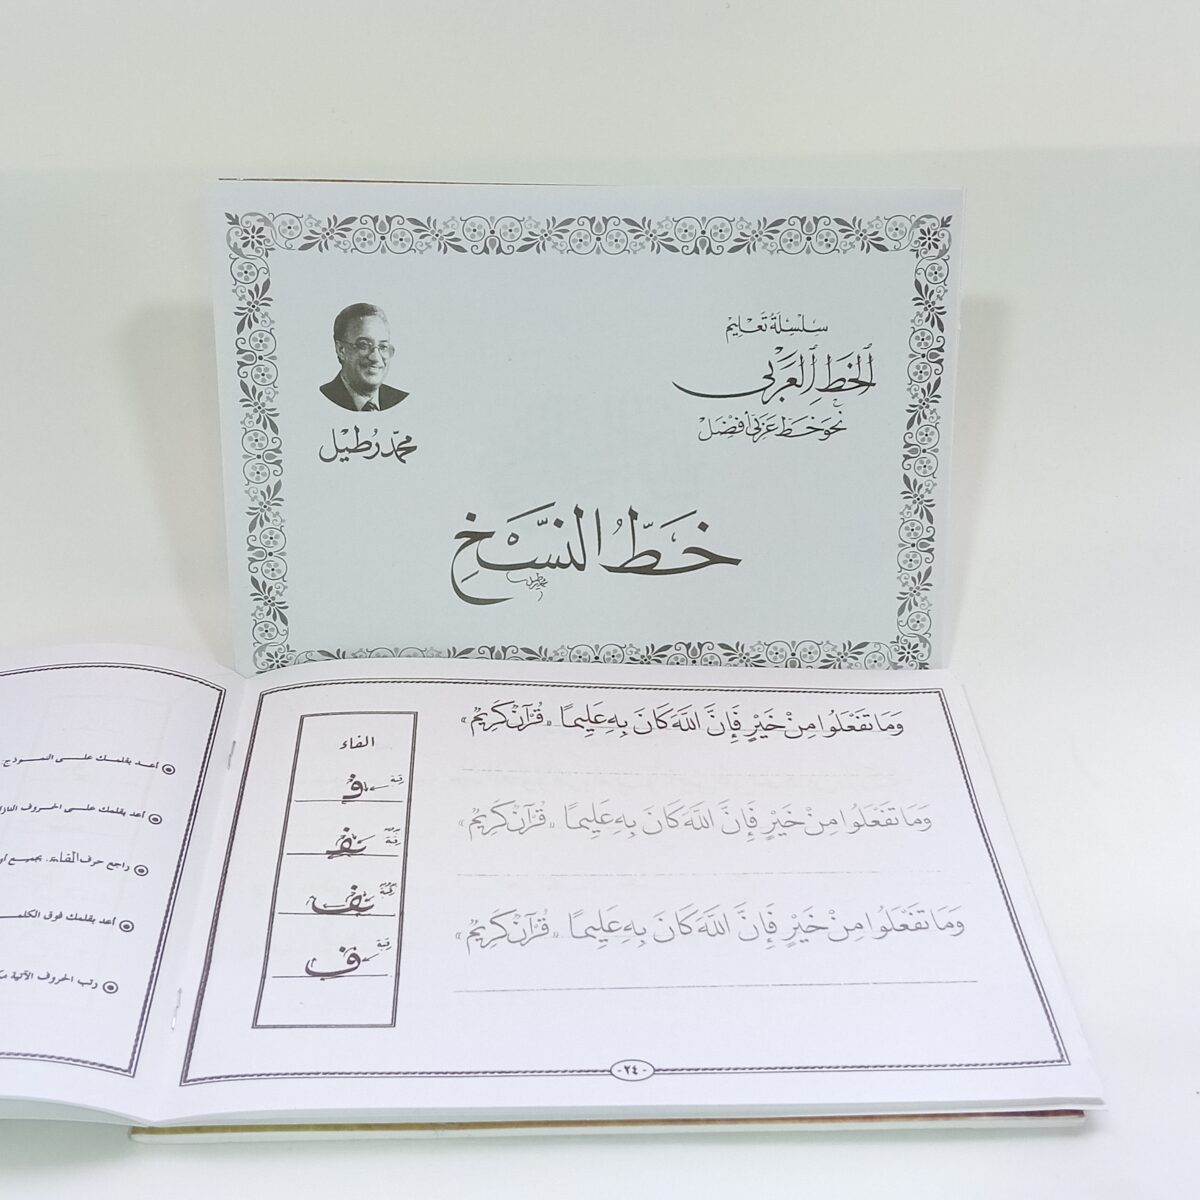 سلسلة تعليم
الخط العربي
نحو خط عربي أفضل
محمد رطيل
خط النسخ
وَمَا تَفْعَلُوا مِنْ خَيْرٍ فَإِنَّ اللَّهَ كَانَ بِهِ عَلِيمًا «قُرْآن كَرِيمْ»
وَمَا تَفْعَلُوا مِنْ خَيْرٍ فَإِنَّ اللَّهَ كَانَ بِهِ عَلِيمًا «قُرْآن كَرِيمْ»
وَمَا تَفْعَلُوا مِنْ خَيْرٍ فَإِنَّ اللَّهَ كَانَ بِهِ عَلِيمًا «قُرْآن كَرِيمْ»
الفاء
ف
ف
ف
ف
-٢٤-
أعد بقلمك على النموذج
أعد بقلمك على الحروف
راجع حرف الفاء. بجميع
أعد بقلمك فوق
رتب الحروف الآتية